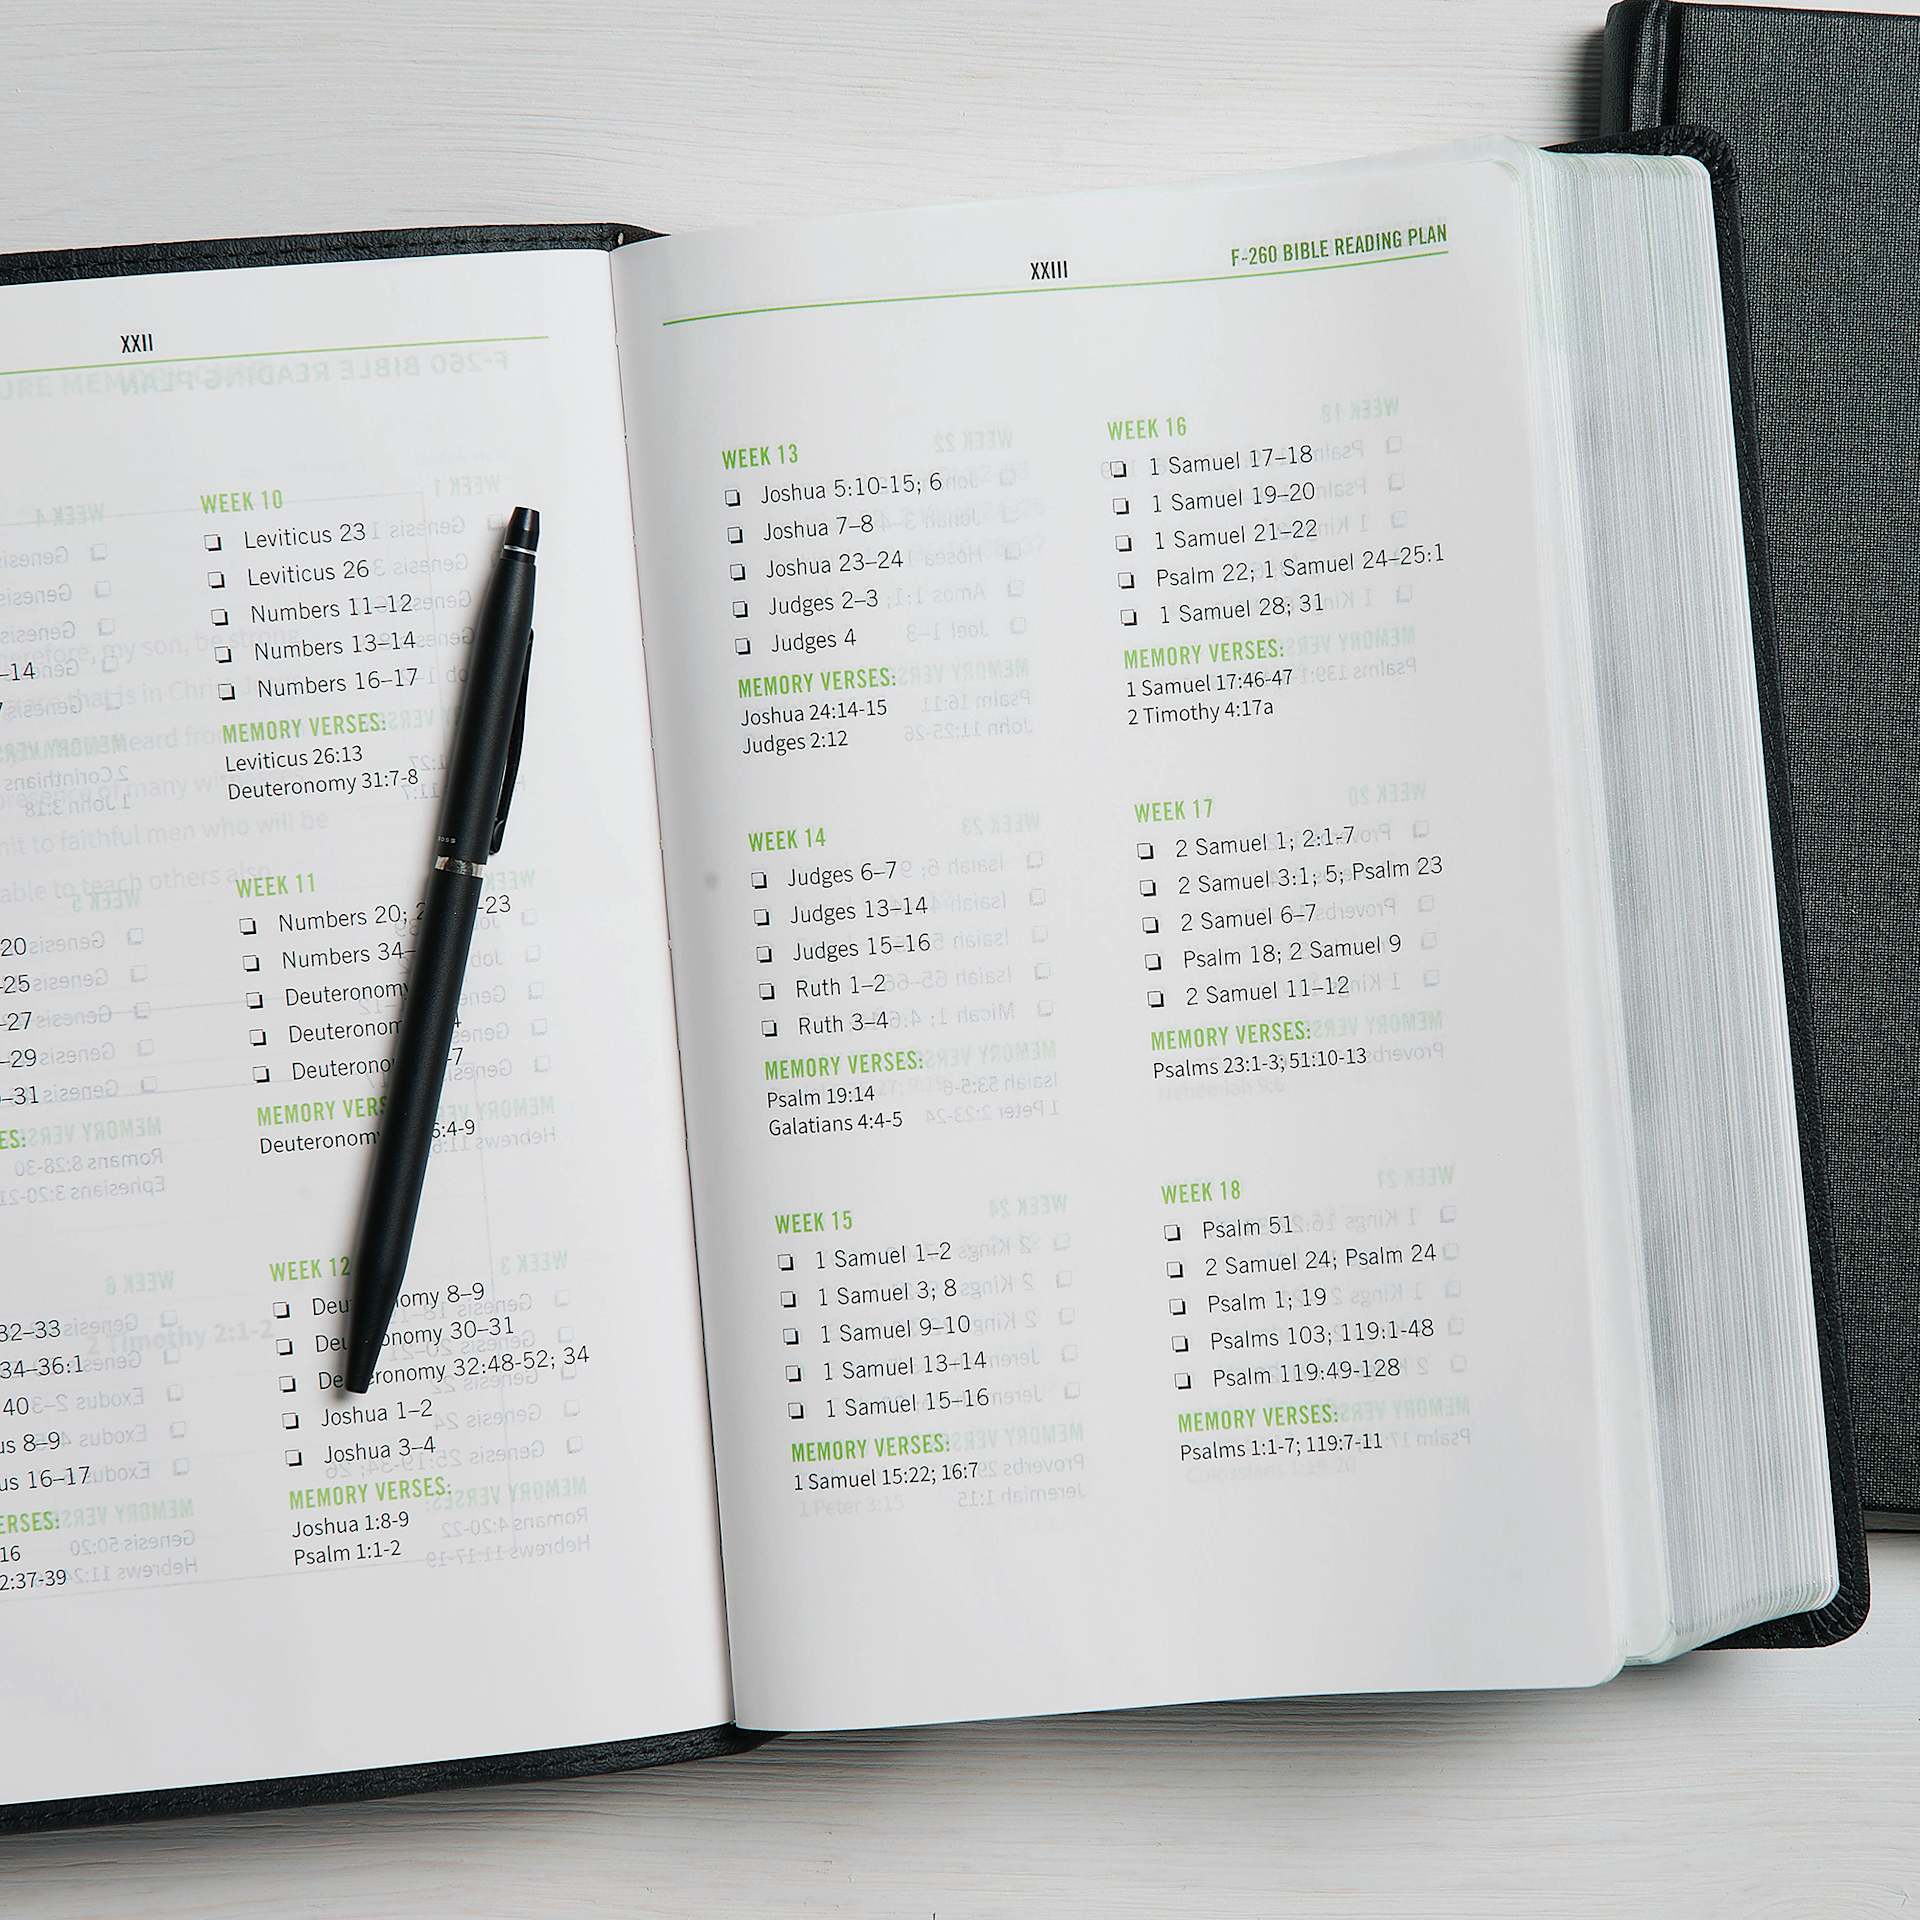 XXII
–14
–20
–25
–27
–29
–31
32–33
34–36:1
40
8–9
16–17
16
2:37-39
WEEK 10
Leviticus 23
Leviticus 26
Numbers 11–12
Numbers 13–14
Numbers 16–17
MEMORY VERSES:
Leviticus 26:13
Deuteronomy 31:7-8
WEEK 11
Numbers 20; –23
Numbers 34–
MEMORY
6:4-9
WEEK 12
8–9
30–31
32:48-52; 34
Joshua 1–2
Joshua 3–4
MEMORY VERSES:
Joshua 1:8-9
Psalm 1:1-2
XXIII
F-260 BIBLE READING PLAN
WEEK 13
Joshua 5:10-15; 6
Joshua 7–8
Joshua 23–24
Judges 2–3
Judges 4
MEMORY VERSES:
Joshua 24:14-15
Judges 2:12
WEEK 14
Judges 6–7
Judges 13–14
Judges 15–16
Ruth 1–2
Ruth 3–4
MEMORY VERSES:
Psalm 19:14
Galatians 4:4-5
WEEK 15
1 Samuel 1–2
1 Samuel 3; 8
1 Samuel 9–10
1 Samuel 13–14
1 Samuel 15–16
MEMORY VERSES:
1 Samuel 15:22; 16:7
WEEK 16
1 Samuel 17–18
1 Samuel 19–20
1 Samuel 21–22
Psalm 22; 1 Samuel 24–25:1
1 Samuel 28; 31
MEMORY VERSES:
1 Samuel 17:46-47
2 Timothy 4:17a
WEEK 17
2 Samuel 1; 2:1-7
2 Samuel 3:1; 5; Psalm 23
2 Samuel 6–7
Psalm 18; 2 Samuel 9
2 Samuel 11–12
MEMORY VERSES:
Psalms 23:1-3; 51:10-13
WEEK 18
Psalm 51
2 Samuel 24; Psalm 24
Psalm 1; 19
Psalms 103; 119:1-48
Psalm 119:49-128
MEMORY VERSES:
Psalms 1:1-7; 119:7-11